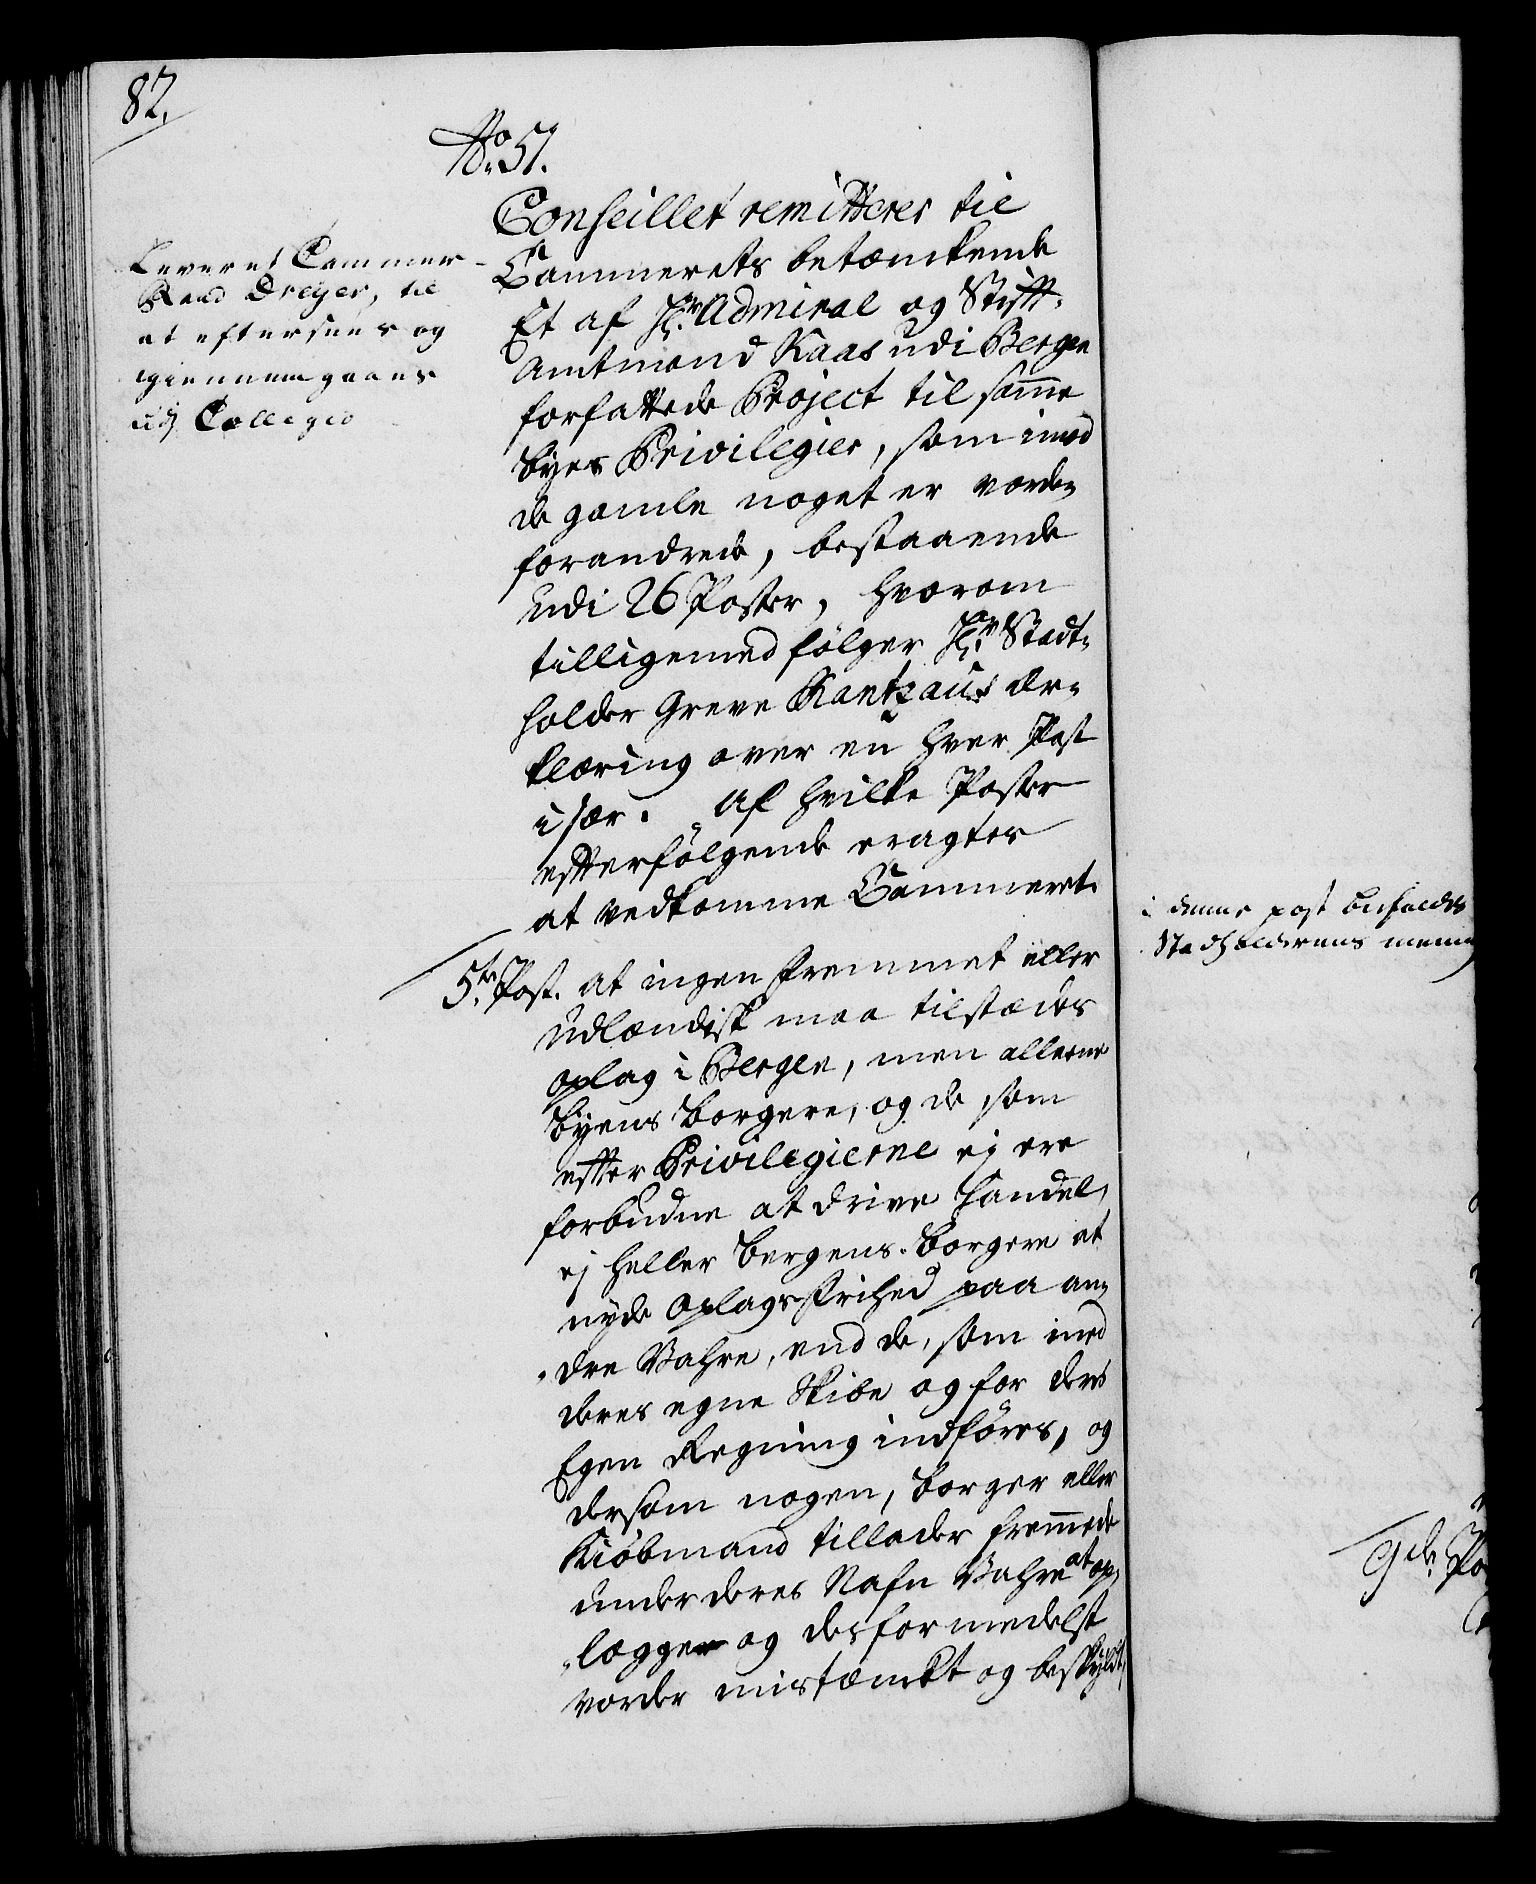 82.
No. 51.
Leveret Cammer-
Raad Dreyer, til
at eftersees og
giennemgaaes
udj Collegio
Conseillet remitterer til
Cammerets betænckende
Et af Hr. Admiral og Stift-
Amtmand Kaas udi Bergen
forfattede Project til samme
byes Privilegier, som imod
de gamle noget er vorden
forandrede, bestaaende
udi 26 Poster, hvorom
tilligemed følger Hr. Stadt-
holder Greve Rantzaus Er-
klæring over en hver Post
især. Af hvilke Poster
efterfølgende eragtes
at vedkomme Cammeret.
5te Post. At ingen fremmet eller
Udlændisk maa tilstædes
oplag i Bergen, men alleene
byens borgere, og de som
efter Privilegierne ej ere
forbudne at drive handel,
ej heller bergens borgere at
nyde Oplags frihed paa an-
dre Vahre, end de, som med
deres egne Skibe og for deris
Egen Regning indføres, og
dersom nogen, borger eller
Kiøbmand tillader fremmede
under deres Nafn Vahre at op-
lægge og desformedelst
vorder mistænckt og beskyldt,
i denne post befaldes
Stadholderens mening
9de Po